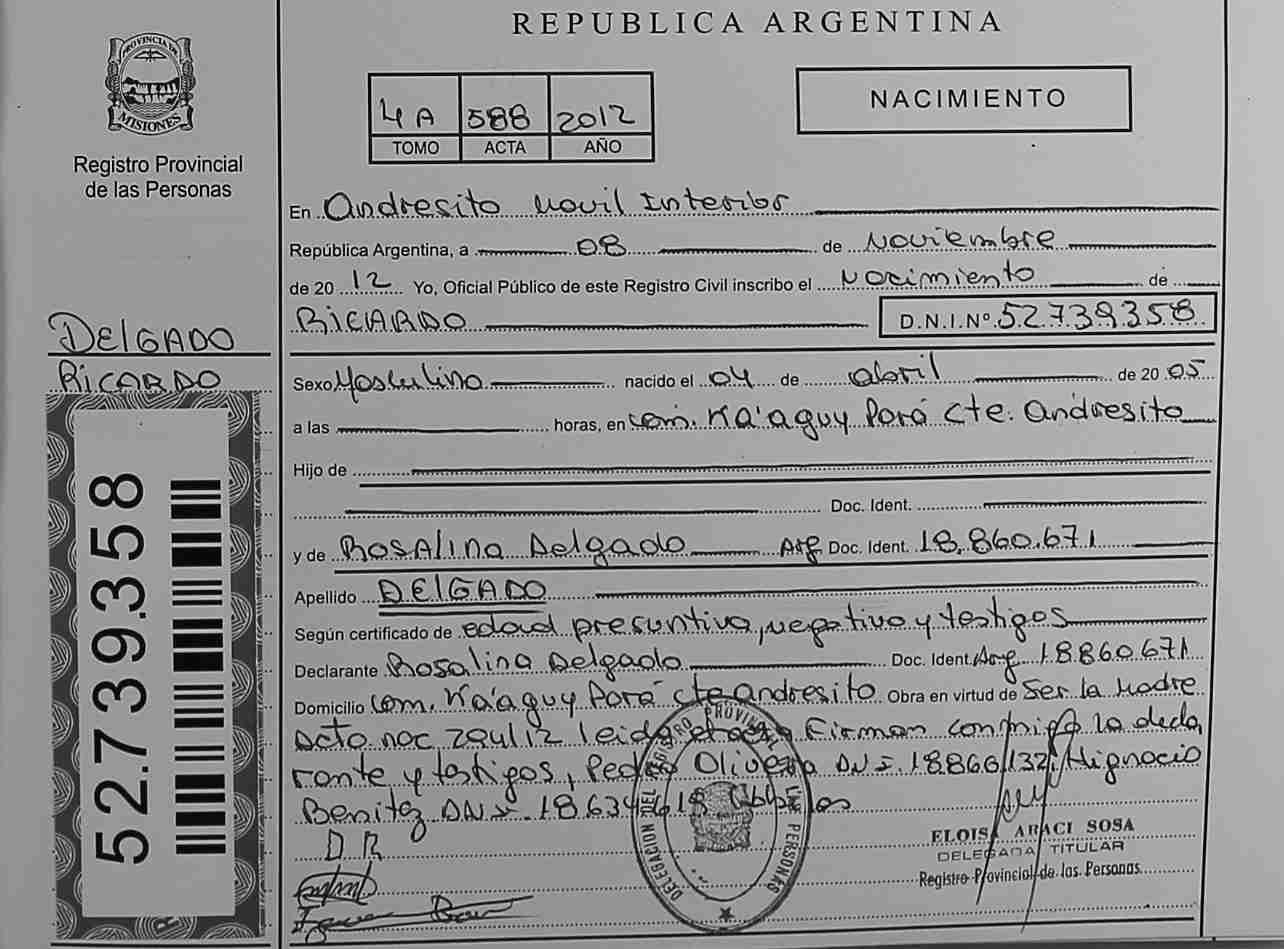 REPUBLICA ARGENTINA
PROVINCIA DE
MISIONES
Registro Provincial
de las Personas
4A 588 2012
TOMO ACTA AÑO
NACIMIENTO
En Andresito Movil Interior
República Argentina, a 08 de Noviembre
de 2012 Yo, Oficial Público de este Registro Civil inscribo el Nacimiento de
RICARDO D.N.I.Nº 52739358
DELGADO
RICARDO
Sexo Masculino nacido el 04 de abril de 2005
a las horas, en com. Ka'aguy Porá cte. Andresito
Hijo de
Doc. Ident.
y de ROSALINA Delgado Arg Doc. Ident. 18.860.671
Apellido DELGADO
Según certificado de edad presuntiva, negativo y testigos
Declarante Rosalina Delgado Doc. Ident. Arg 18860671
Domicilio com. Ka'aguy Porá cte andresito Obra en virtud de Ser la Madre
Acta nac, leida Firman conmigo la decla
rante y testigos, Pedro Olivera DNI 18866132, Hignacio
Benitez DNI 18.634.618
D R
52.739.358
DELEGACION DEL REGISTRO PROVINCIAL DE LAS PERSONAS
ELOISA ARACI SOSA
DELEGADA TITULAR
Registro Provincial de las Personas